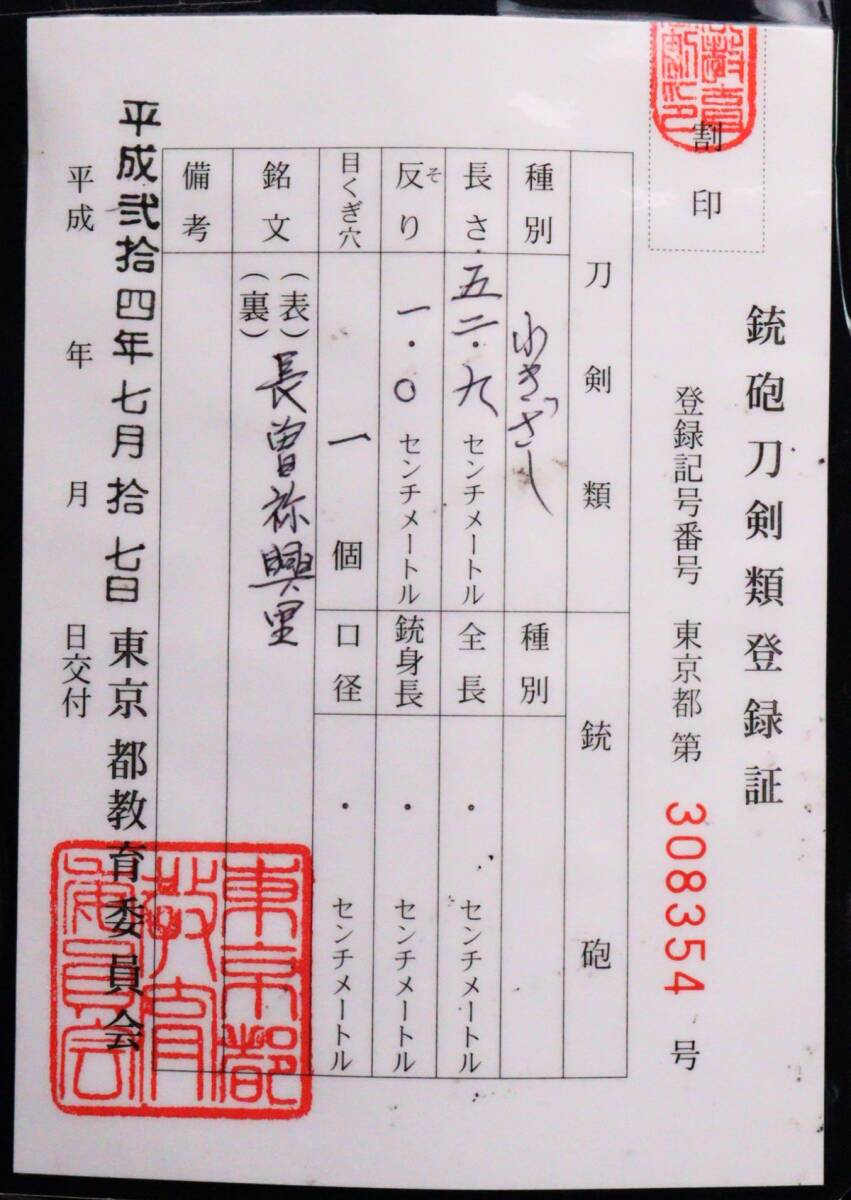 割印
銃砲刀剣類登録証
登録記号番号 東京都 第 308354 号
刀剣類
種別 わきざし
長さ 五二・九 センチメートル
反り そ 一・〇 センチメートル
目くぎ穴 一 個
銘文 (表) 長曽祢興里
(裏)
備考
銃砲
種別
全長 ・ センチメートル
銃身長 ・ センチメートル
口径 ・ センチメートル
平成弐拾四年七月拾七日 東京都教育委員会
平成 年 月 日交付
東京都
教育
委員会